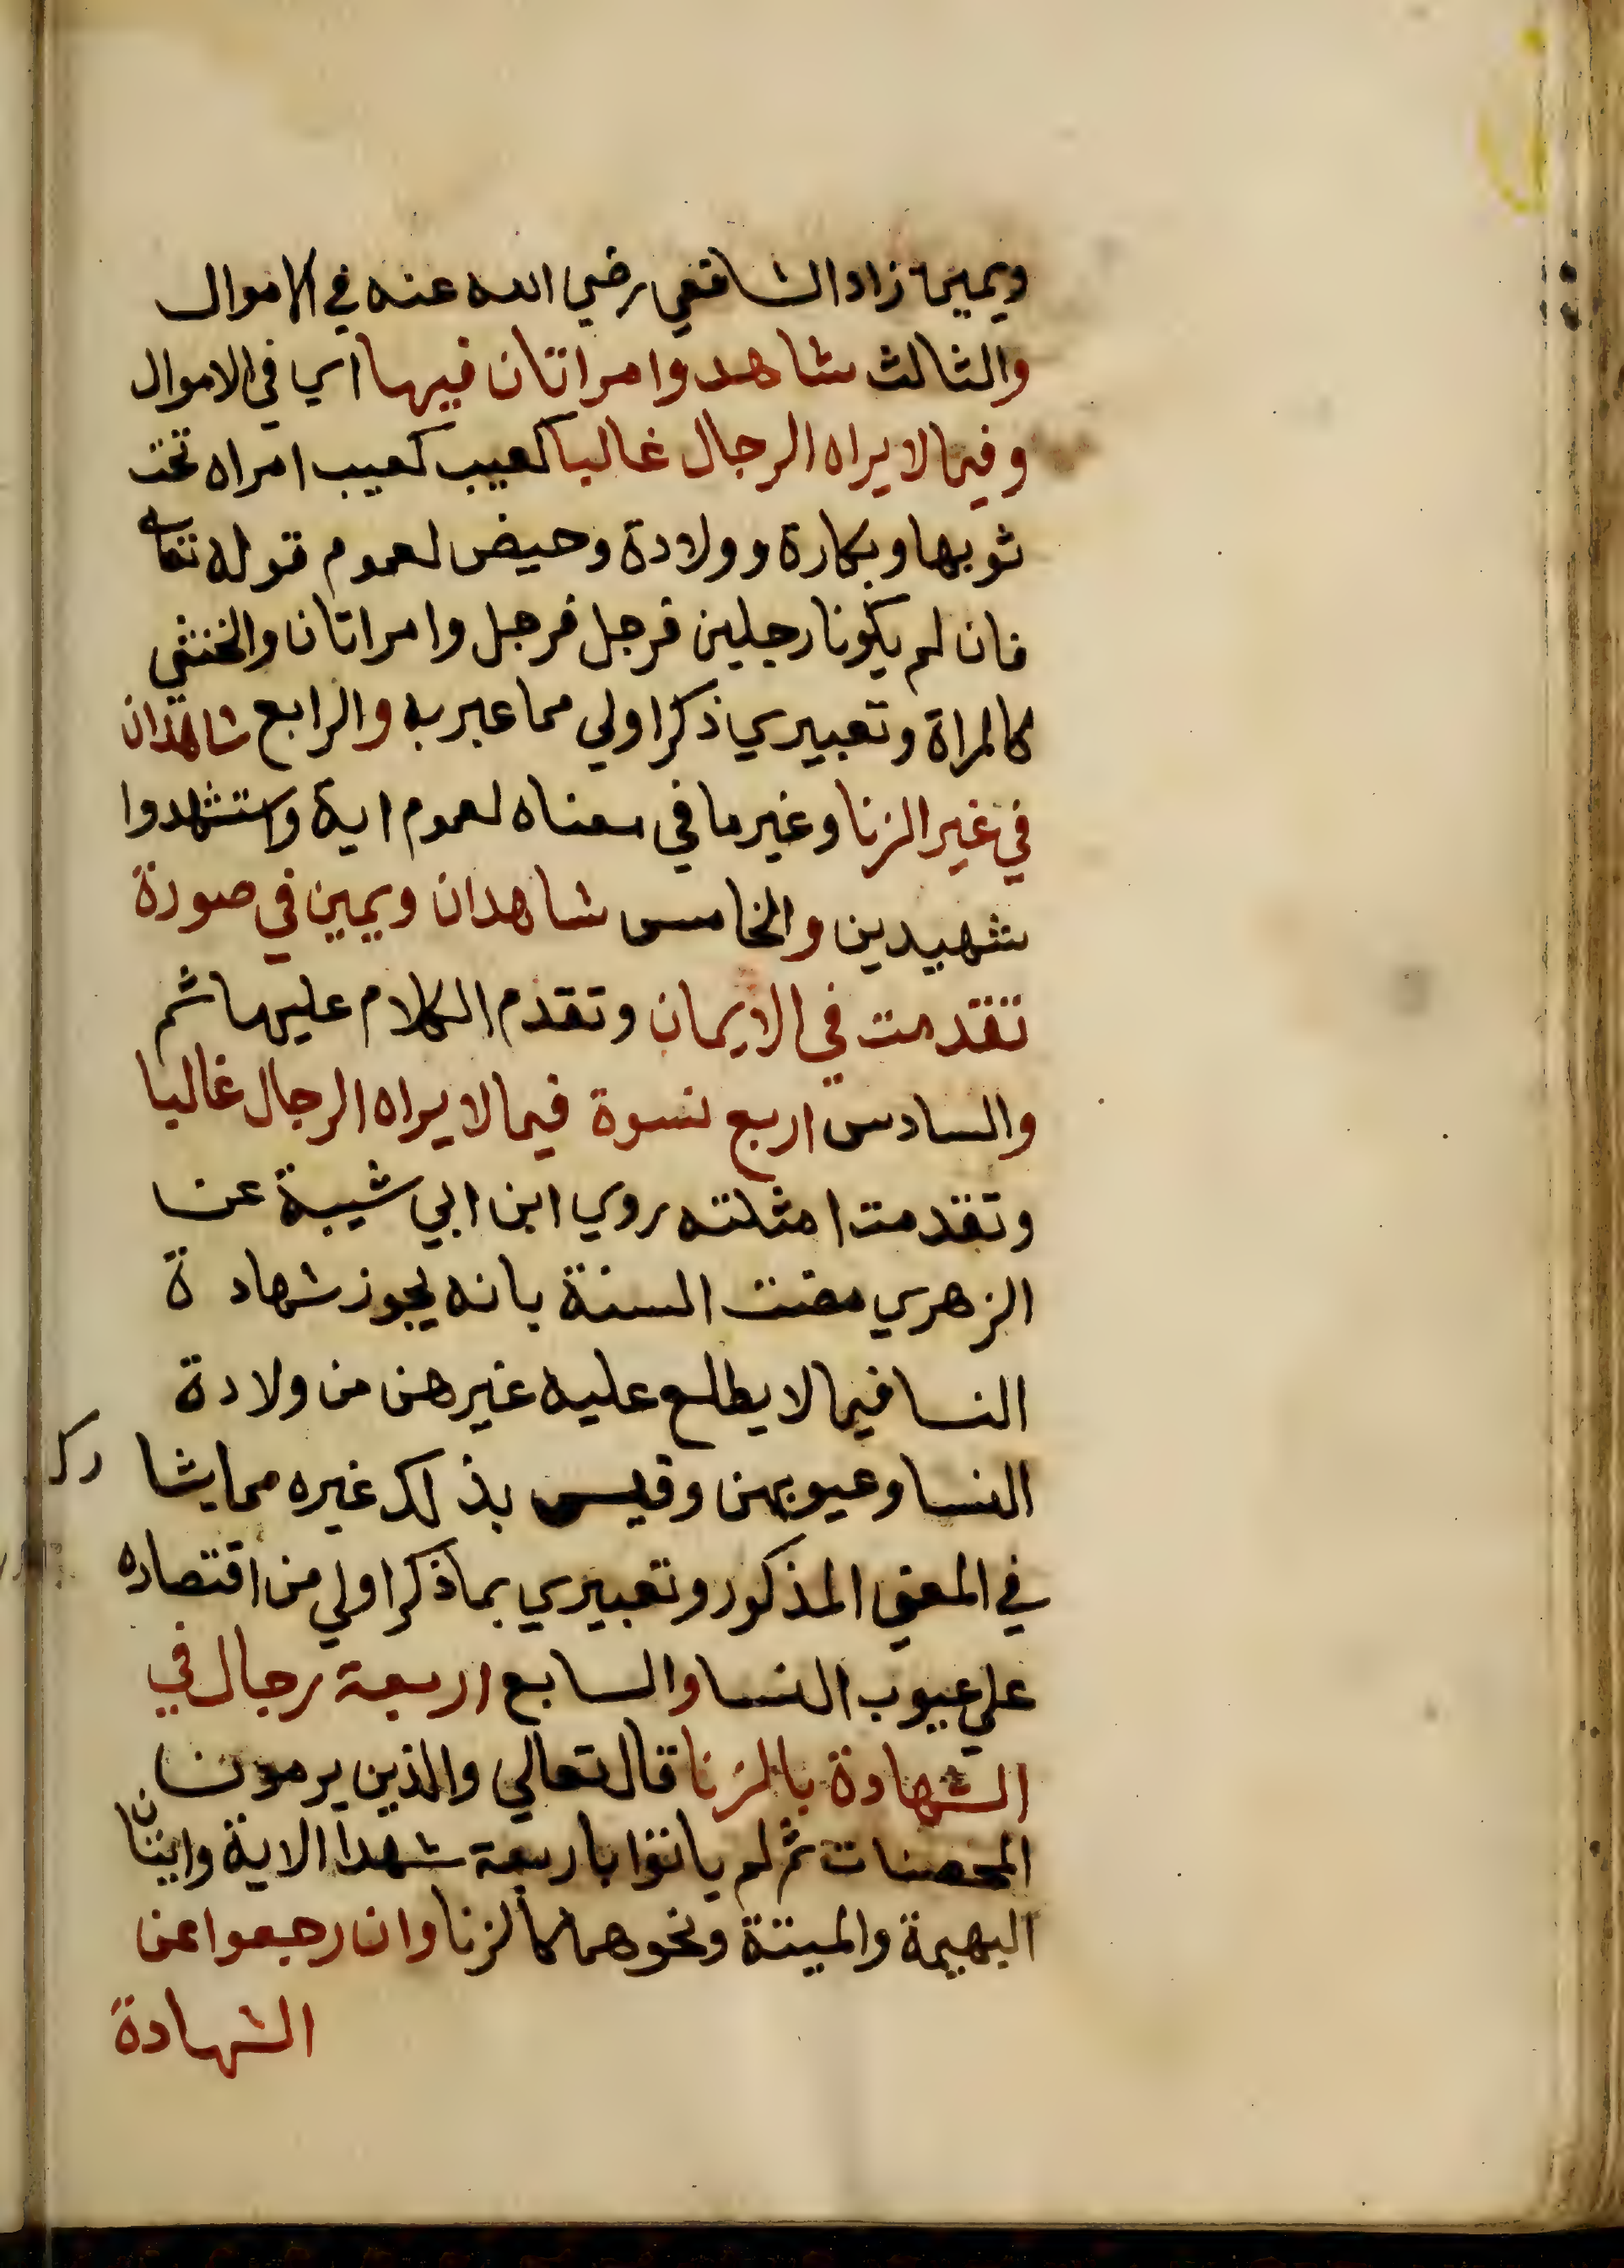 ويمين زاد الشافعي رضي الله عنه في الاموال
والثالث شاهد وامراتان فيها اي في الاموال
وفيما لا يراه الرجال غالبا كعيب كعيب امراه تحت
ثوبها وبكارة وولادة وحيض لعموم قوله تعالى
فان لم يكونا رجلين فرجل فرجل وامراتان والخنثي
كالمراة وتعبيري ذكر اولي مما عبر به والرابع شاهدان
في غير الزنا وغير ما في معناه لعموم اية واستشهدوا
شهيدين والخامس شاهدان ويمين في صورة
تقدمت في الايمان وتقدم الكلام عليها ثم
والسادس اربع نسوة فيما لا يراه الرجال غالبا
وتقدمت امثلته روي ابن ابي شيبة عن
الزهري مضت السنة بانه يجوز شهادة
النسا فيما لا يطلع عليه غيرهن من ولادة
النسا وعيوبهن وقيس بذلك غيره مما يشا رك
في المعني المذكور وتعبيري بما ذكر اولي من اقتصاره
علي عيوب النسا والسابع اربعة رجال في
الشهادة بالزنا قال تعالي والذين يرمون
المحصنات ثم لم ياتوا باربعة شهدا الاية واتيان
البهيمة والميتة ونحوهما كالزنا وان رجعوا عن
الشهادة